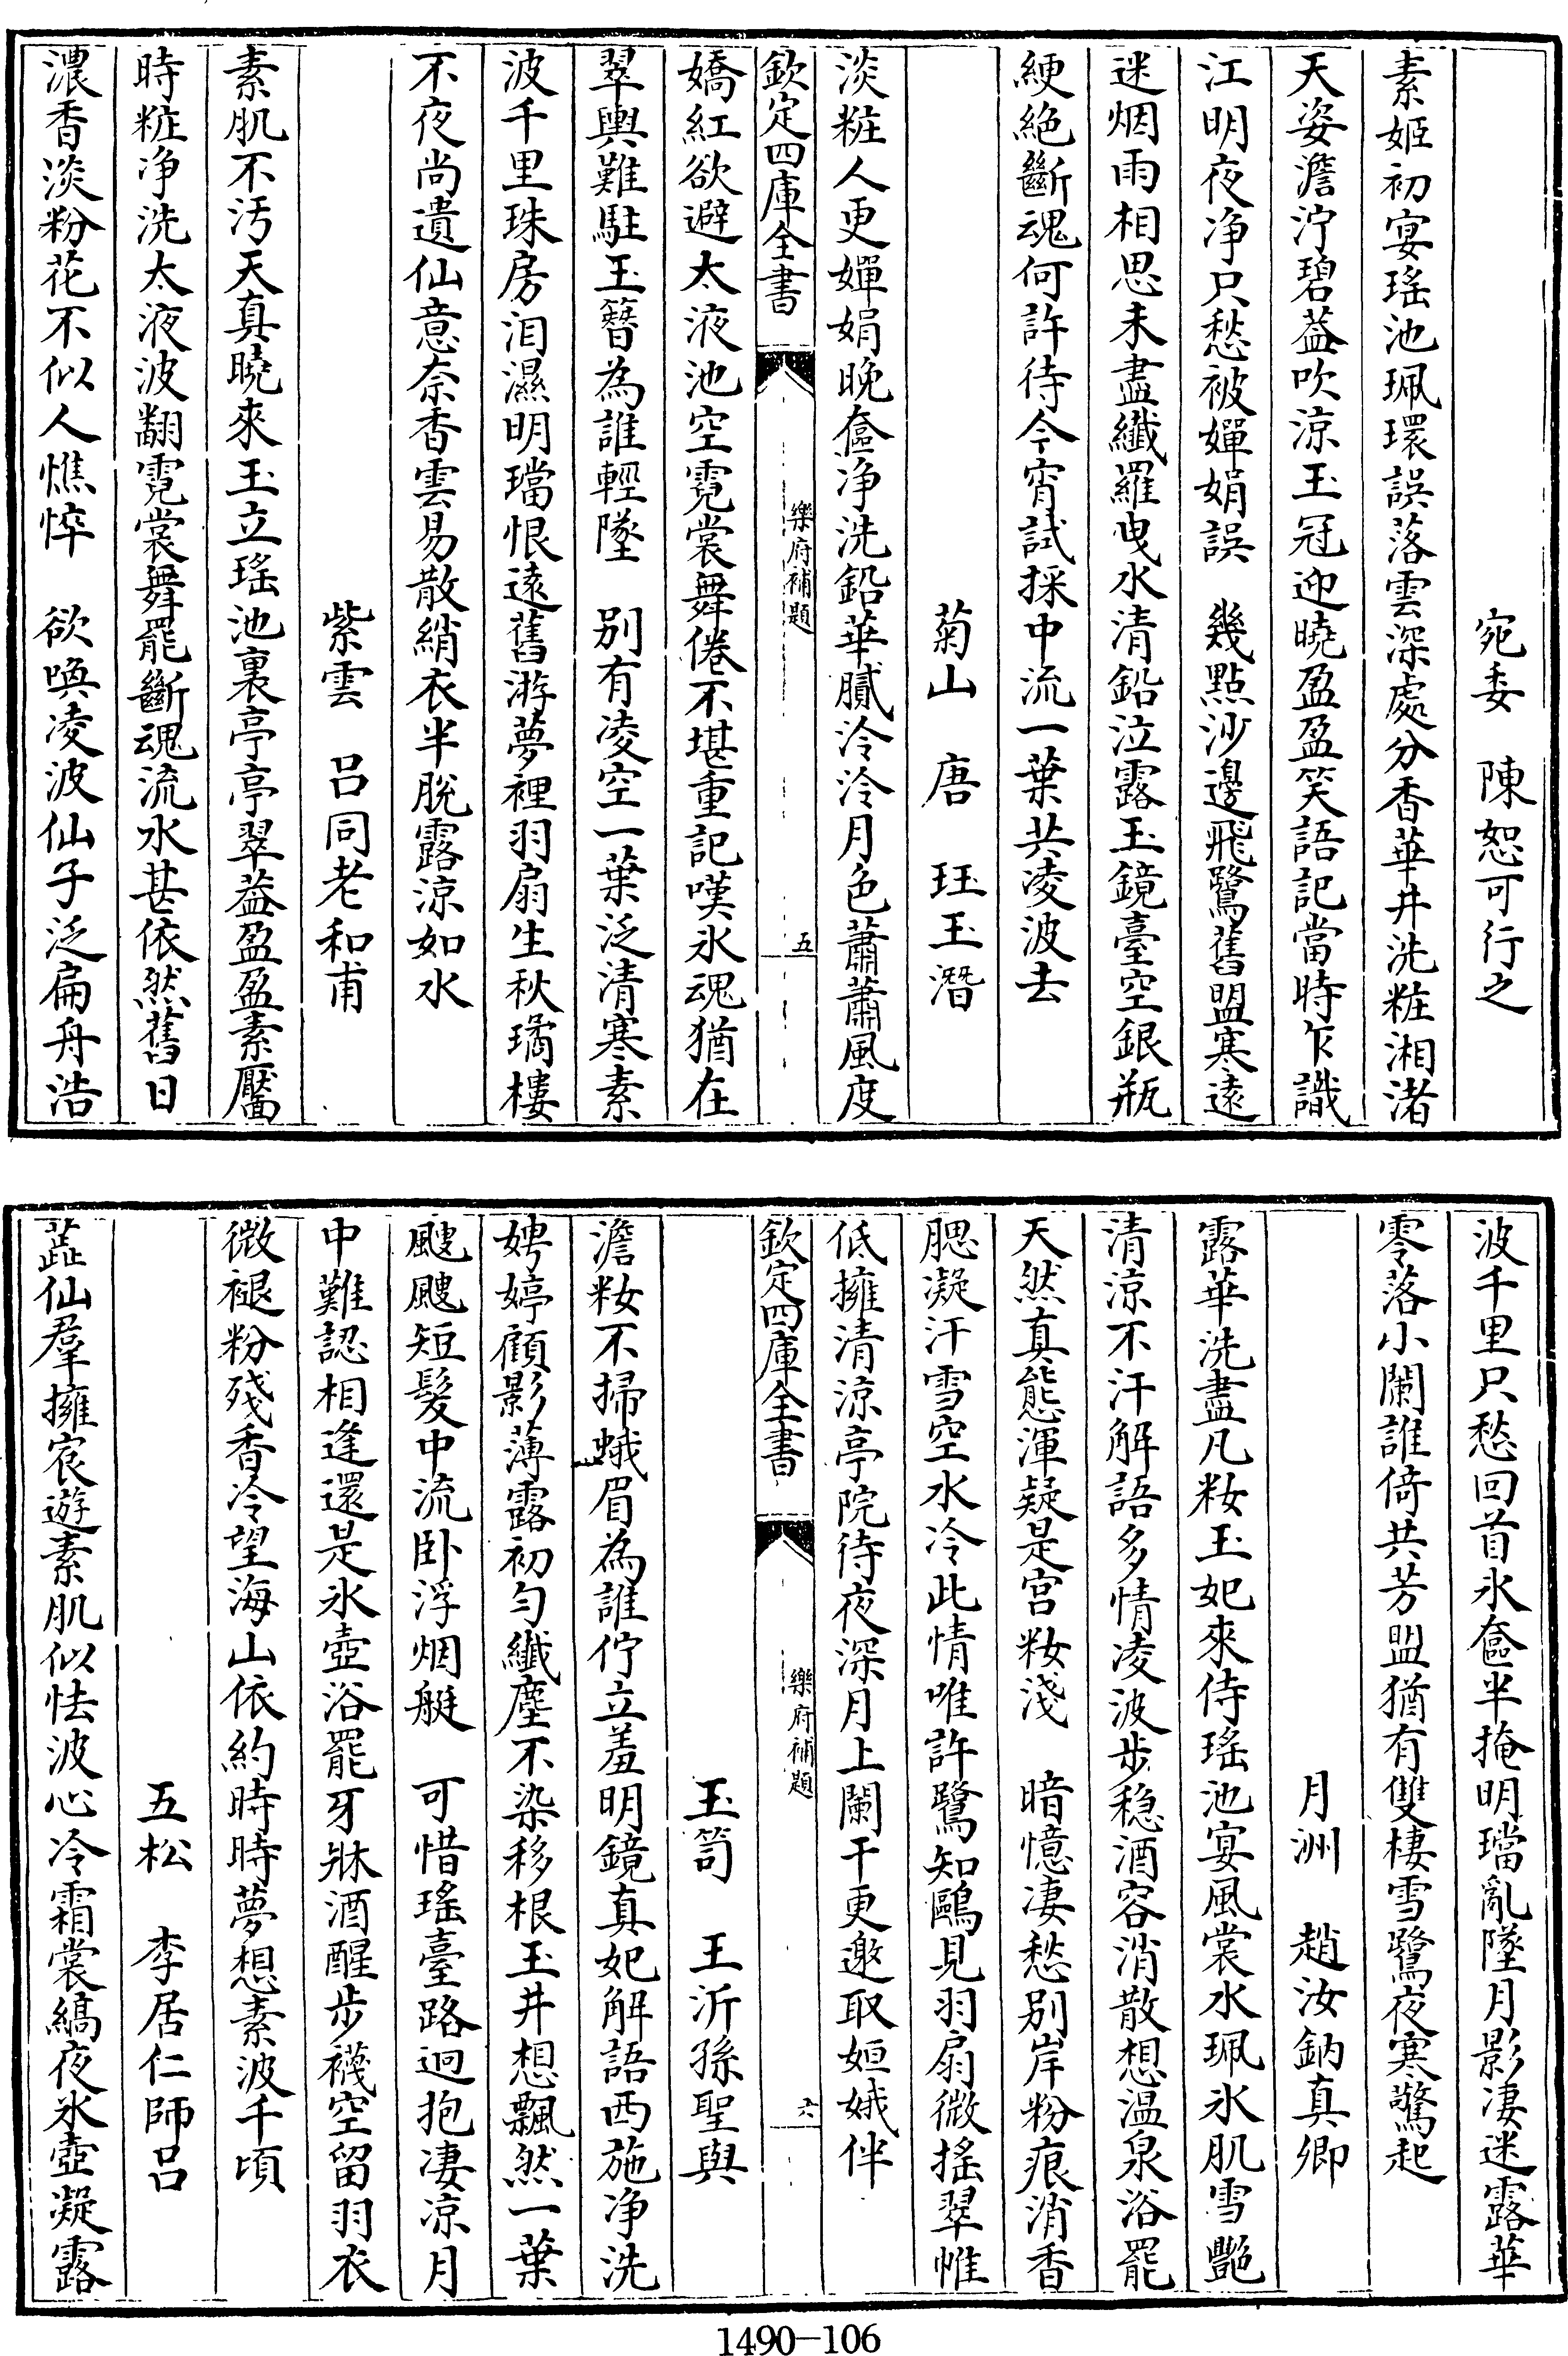 宛委　陳恕可行之
素姬初宴瑤池珮環誤落雲深處分香華井洗粧湘渚
天姿澹泞碧葢吹涼玉冠迎曉盈盈笑語記當時乍識
江明夜净只愁被嬋娟誤　幾點沙邊飛鷺舊盟寒遠
迷烟雨相思未盡纖羅曳水清鉛泣露玉鏡臺空銀瓶
綆絶斷魂何許待今宵試採中流一葉共凌波去
菊山　唐　珏玉潛
淡粧人更嬋娟晚奩净洗鉛華膩泠泠月色蕭蕭風度
嬌紅欲避太液池空霓裳舞倦不堪重記嘆氷魂猶在
翠輿難駐玉簪為誰輕墜　别有凌空一葉泛清寒素
波千里珠房泪濕明璫恨遠舊游夢裡羽扇生秋璚樓
不夜尚遺仙意奈香雲易散綃衣半脫露涼如水
紫雲　呂同老和甫
素肌不汚天真曉來玉立瑤池裏亭亭翠葢盈盈素靨
時粧净洗太液波翻霓裳舞罷斷魂流水甚依然舊日
濃香淡粉花不似人憔悴　欲喚凌波仙子泛扁舟浩
欽定四庫全書
樂府補題
五
波千里只愁回首氷奩半掩明璫亂墜月影凄迷露華
零落小闌誰倚共芳盟猶有雙棲雪鷺夜寒驚起
月洲　趙汝鈉真卿
露華洗盡凡粧玉妃來侍瑤池宴風裳水珮氷肌雪艷
清涼不汗解語多情凌波步稳酒容消散想温泉浴罷
天然真態渾疑是宫粧淺　暗憶凄愁别岸粉痕消香
腮凝汗雪空水冷此情唯許鷺知鷗見羽扇微搖翠帷
低擁清涼亭院待夜深月上闌干更邀取姮娥伴
玉笥　王沂孫聖與
澹粧不掃蛾眉為誰佇立羞明鏡真妃解語西施净洗
娉婷顧影薄露初勻纖塵不染移根玉井想飄然一葉
颼颼短髮中流卧浮烟艇　可惜瑤臺路迥抱凄凉月
中難認相逢還是氷壺浴罷牙牀酒醒步襪空留羽衣
微褪粉殘香冷望海山依約時時夢想素波千頃
五松　李居仁師呂
蕋仙羣擁宸遊素肌似怯波心冷霜裳縞夜氷壺凝露
欽定四庫全書
樂府補題
六
1490—106